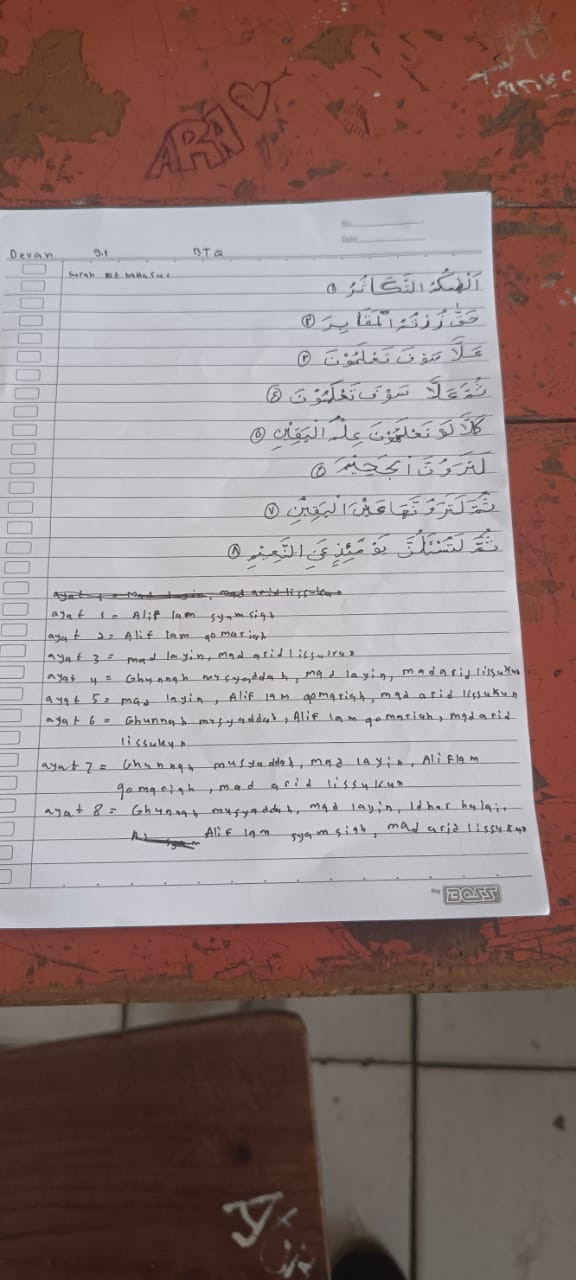 ARA
No.
Date.
Devan 9.1 BTQ
Surah
اَلْهٰىكُمُ التَّكَاثُرُ ١
حَتّٰى زُرْتُمُ الْمَقَابِرَ ٢
سَوْفَ تَعْلَمُوْنَ ٣
سَوْفَ تَعْلَمُوْنَ ٤
كَلَّا لَوْ تَعْلَمُوْنَ عِلْمَ الْيَقِيْنِ ٥
لَتَرَوُنَّ الْجَحِيْمَ
ثُمَّ لَتَرَوُنَّهَا عَيْنَ الْيَقِيْنِ ٧
ثُمَّ لَتُسْـَٔلُنَّ يَوْمَئِذٍ عَنِ النَّعِيْمِ ٨
ayat 1 = Mad layin, mad arid lissukun
ayat 1 = Alif lam syamsiah
ayat 2 = Alif lam qomariah
ayat 3 = mad layin, mad arid lissukun
ayat 4 = Ghunnah musyaddah, mad layin, mad arid lissukun
ayat 5 = mad layin, Alif lam qomariah, mad arid lissukun
ayat 6 = Ghunnah musyaddah, Alif lam qomariah, mad arid
lissukun
ayat 7 = Ghunnah musyaddah, mad layin, Alif lam
qomariah, mad arid lissukun
ayat 8 = Ghunnah musyaddah, mad layin, Idhar halqi,
Alif lam syamsiah, mad arid lissukun
BOSS